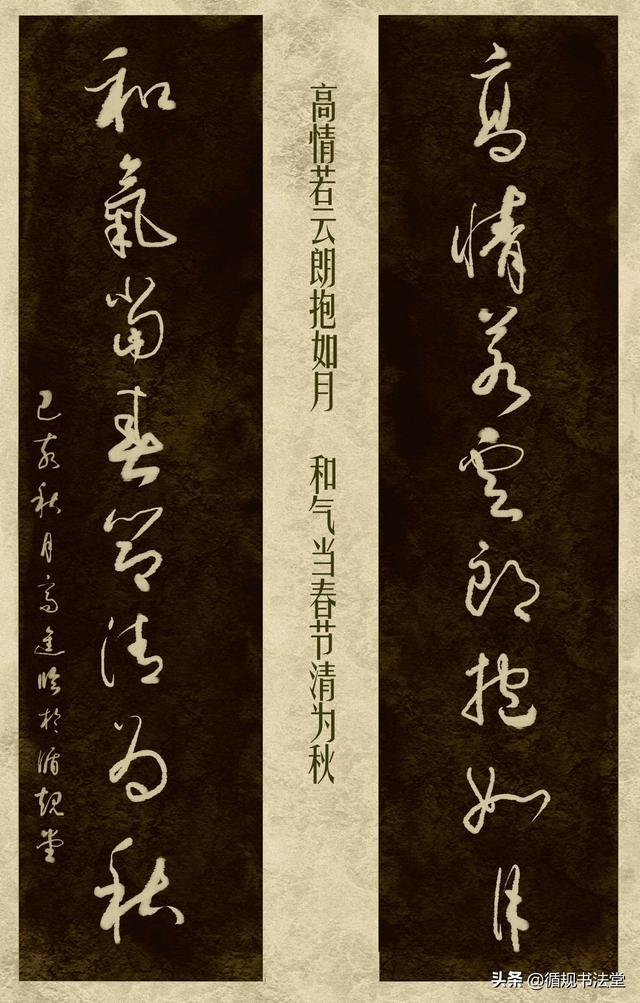 高情若雲朗抱如月
高情若云朗抱如月 和气当春节清为秋
和氣當春節清為秋
己亥秋月高進臨於循規堂
头条 @循规书法堂